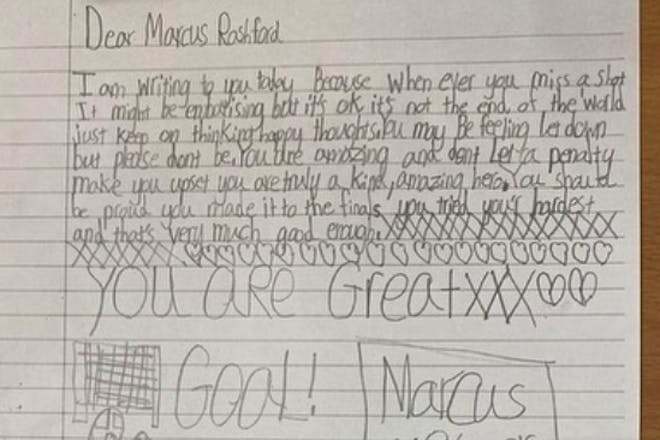 Dear Marcus Rashford
I am writing to you today Because when ever you miss a shot
It might be embarising but it's ok it's not the end of the world
just keep on thinking happy thoughts.You may Be feeling let down
but please dont be.You are amazing and dont let a penalty
make you upset you are truly a kind, amazing hero.You should
be proud you made it to the finals, you tried your hardest
and that's very much good enough.XXXXXXXXXXXXXX
XXXXXXX♡♡♡♡♡♡♡♡♡♡♡♡♡♡♡♡♡♡♡
you are Great xxx♡♡
Goal! Marcus